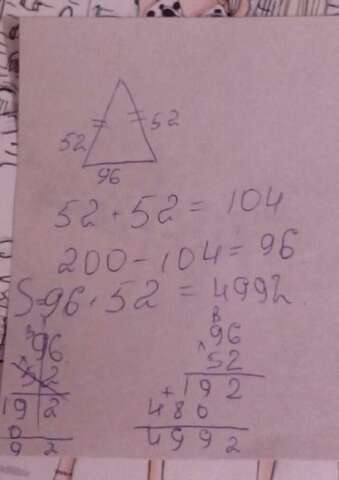 52 52
96
52 + 52 = 104
200 - 104 = 96
S=96 · 52 = 4992
96
× 52
19 2
0
9 2
8
96
× 52
+ 192
480
4992